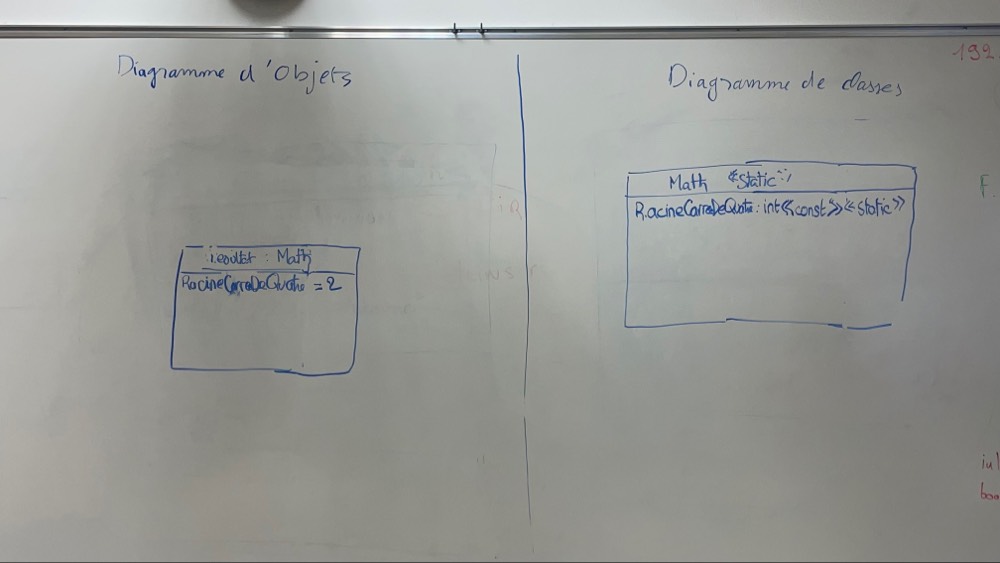 Diagramme d'Objets
: Math
RacineCarreDeQuatre = 2
Diagramme de classes
Math «Static»
RacineCarreDeQuatre : int «const» «static»
192
F